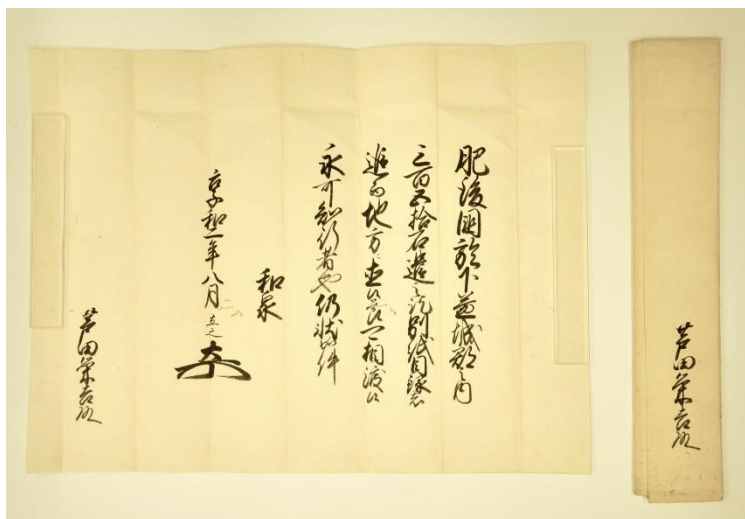 肥後國於下益城郡之内
三百五拾石遣之訖別紙目録
追而地方ニ直候節可相渡候
永可知行者也仍状如件
和泉
享和二年八月
芦田栄吉殿
芦田栄吉殿